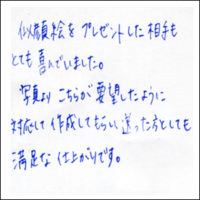 似顔絵を プレゼントした相手も
とても喜んでいました。
写真より こちらが要望したように
対応して作成してもらい 送った方としても
満足な仕上がりです。